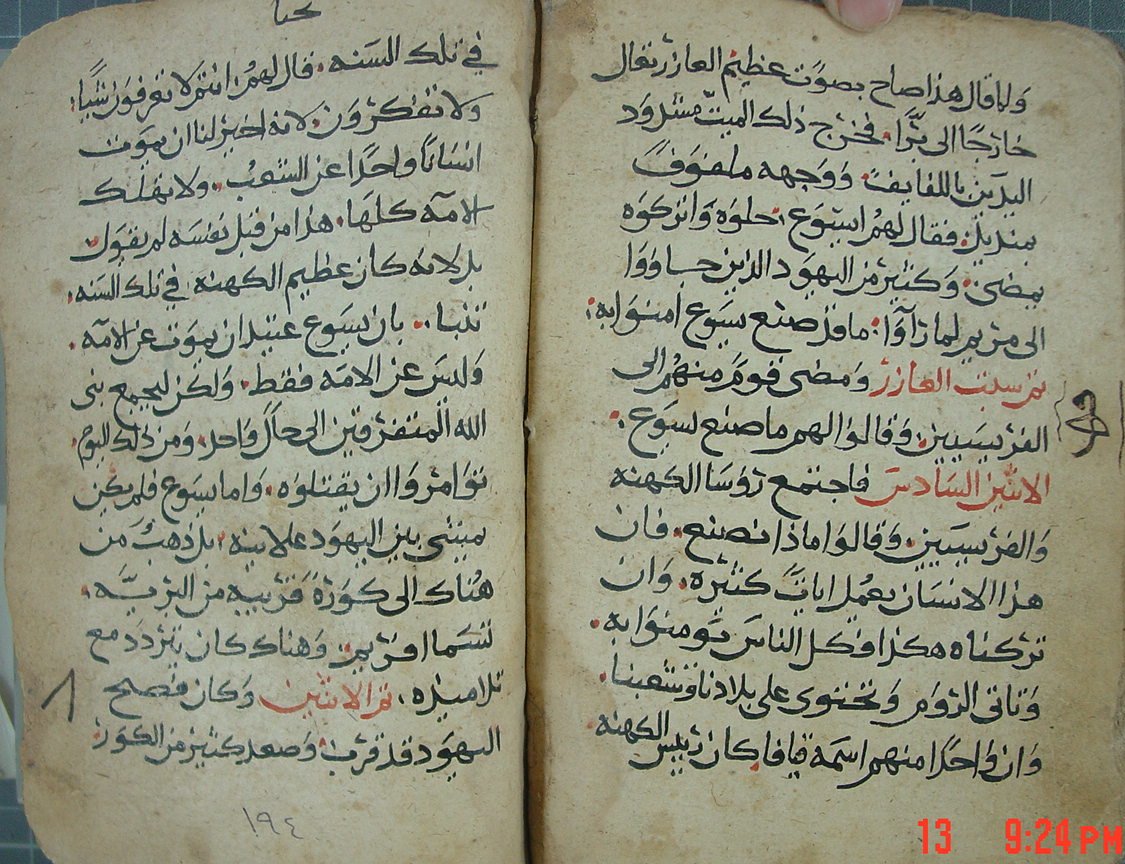 ولما قال هذا صاح بصوت عظيم العازر تعال
خارجًا الى برّا. فخرج ذلك الميت مشدود
اليدين باللفايف. ووجهه ملفوفًا
بمنديل. فقال لهم ايسوع. حلوه واتركوه
يمضى. وكثير من اليهود الذين جاووا
الى مريم لما رآوا. ما قد صنع يسوع امنوا به.
تم سبت العازر ومضى قوم منهم الى
الفريسيين. وقالوا لهم ما صنع يسوع.
الاثنين السادس فاجتمع روسا الكهنه
والفريسيين. وقالوا ماذا نصنع. فان
هذا الانسان يعمل ايات كثيره. وان
تركناه هكذا فكل الناس يومنوا به.
وتاتى الروم وتحتوى على بلادنا وشعبنا.
وان واحدًا منهم اسمه قيافا كان رييس الكهنه
في تلك السنه. قال لهم. انتم لا تعرفون شيًا.
ولا تفكرون. لانه اخير لنا ان يموت
انسانًا واحدًا عن الشعب. ولا تهلك
الامه كلها. هذا من قبل نفسه لم يقول
بل لانه كان عظيم الكهنه في تلك السنه.
تنبا. بان يسوع عتيد ان يموت عن الامه.
وليس عن الامه فقط. ولكن ليجمع بنى
الله المتفرقين الى حال واحد. ومن ذلك اليوم.
توامروا ان يقتلوه. واما يسوع فلم يكن
يمشى بين اليهود علانيه. بل ذهب من
هناك الى كورة قريبه من البريّه.
تسما افريم. وهناك كان يتردد مع
تلاميذه. تم الاثنين وكان فصح
اليهود قد قرب. وصعد كثير من الكور
١٩٤
13 9:24 PM